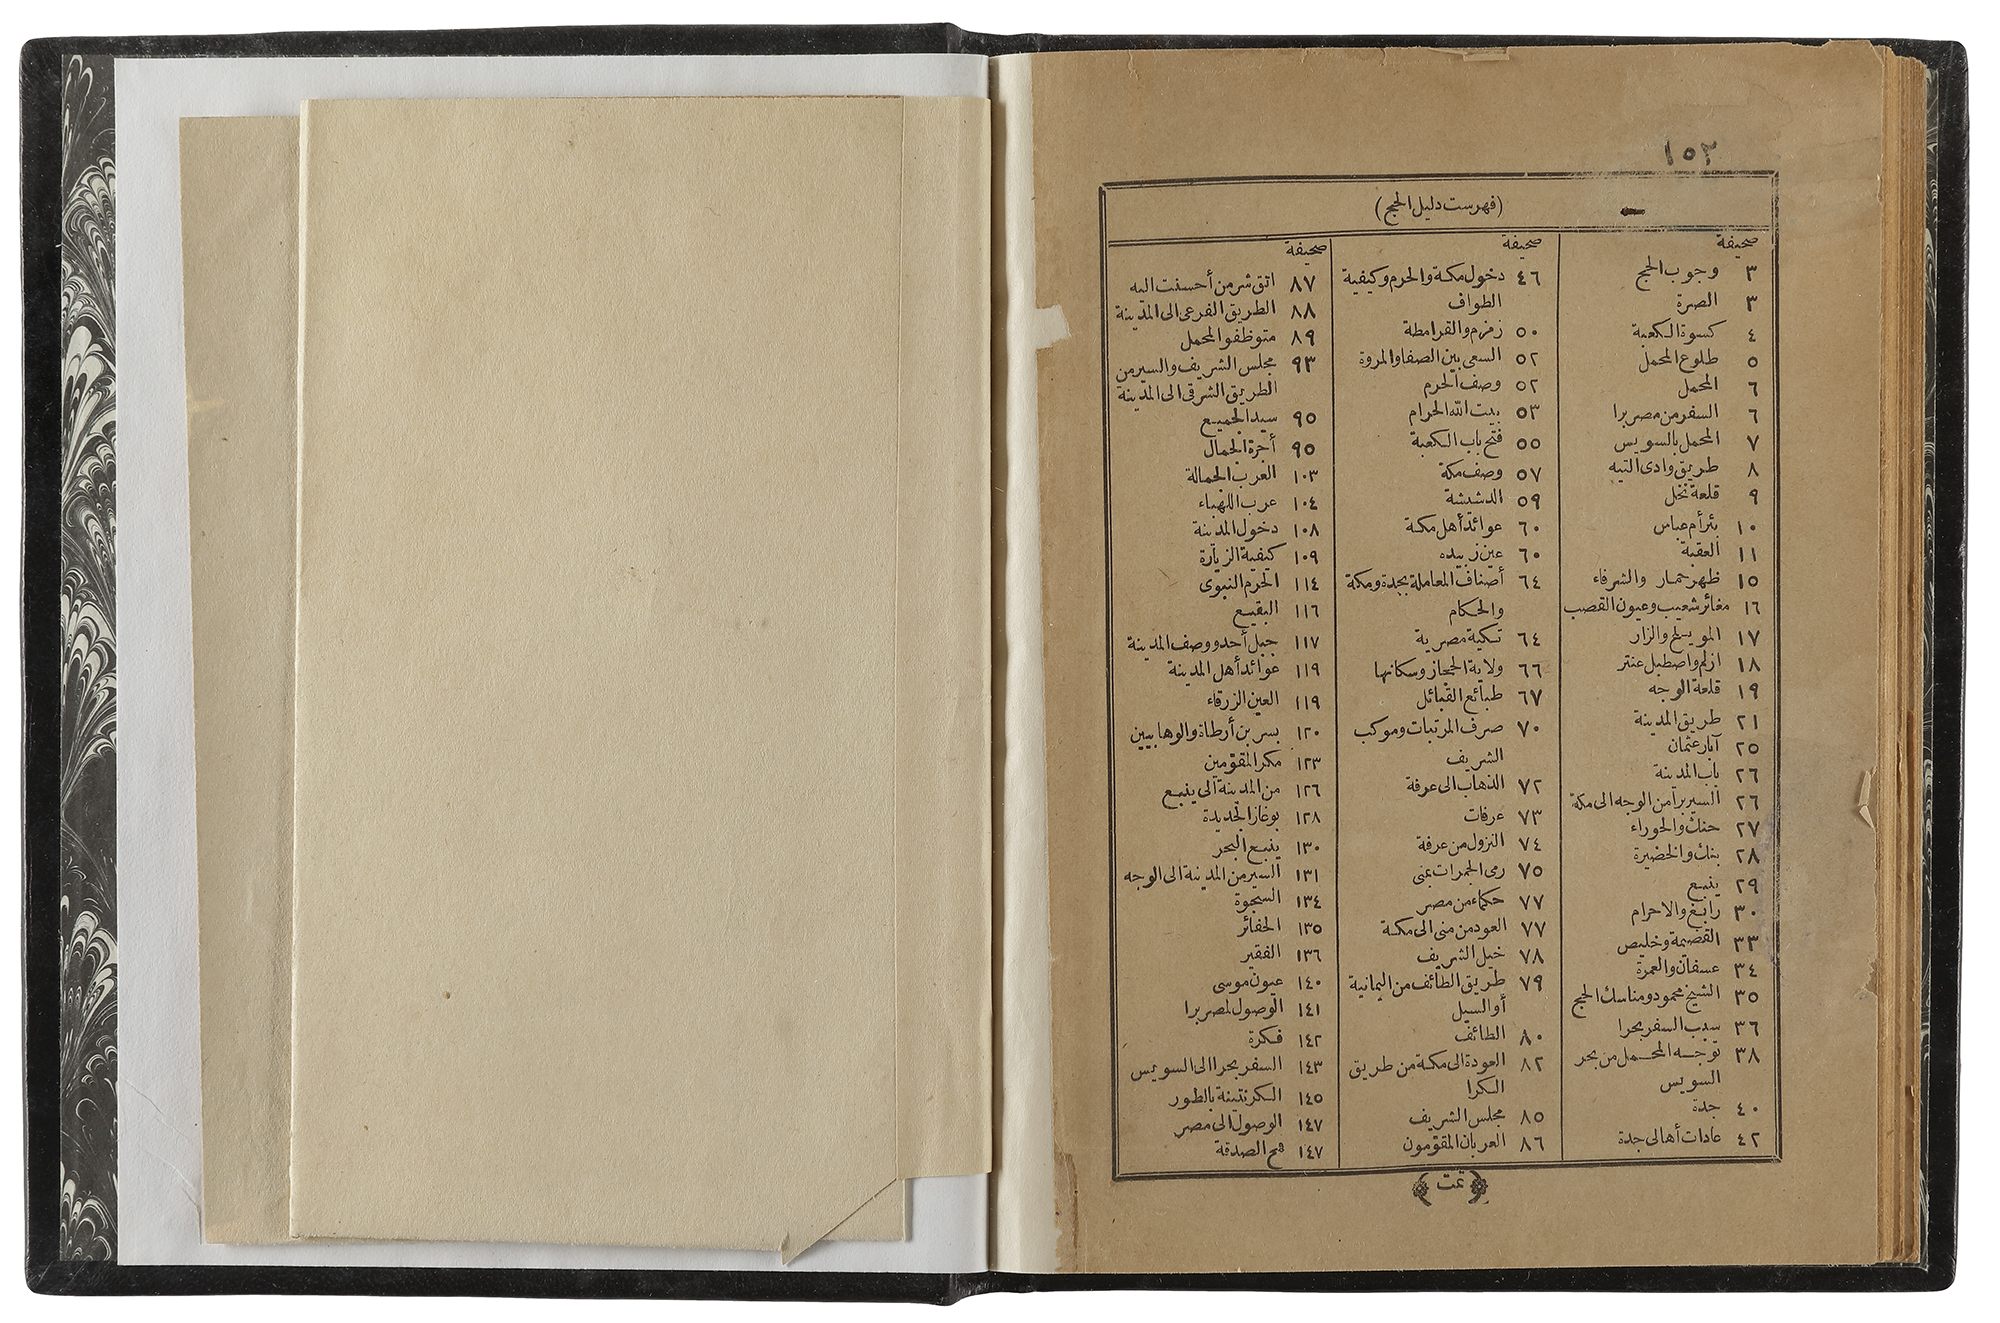 ١٥٣
(فهرست دليل الحج)
صحيفة
٣ وجوب الحج
٣ الصرة
٤ كسوة الكعبة
٥ طلوع المحمل
٦ المحمل
٦ السفر من مصر برا
٧ المحمل بالسويس
٨ طريق وادى التيه
٩ قلعة نخل
١٠ بئر أم عباس
١١ العقبة
١٥ ظهر حمار والشرفاء
١٦ مغائر شعيب وعيون القصب
١٧ المويلح والزار
١٨ ازلم واصطبل عنتر
١٩ قلعة الوجه
٢١ طريق المدينة
٢٥ آبار عثمان
٢٦ باب المدينة
٢٦ السير برا من الوجه الى مكة
٢٧ حنك والحوراء
٢٨ بنك والخضيرة
٢٩ ينبع
٣٠ رابغ والاحرام
٣٣ القضيمة وخليص
٣٤ عسفان والعمرة
٣٥ الشيخ محمود ومناسك الحج
٣٦ سبب السفر بحرا
٣٨ توجه المحمل من بحر
السويس
٤٠ جدة
٤٢ عادات أهالى جدة
صحيفة
٤٦ دخول مكة والحرم وكيفية
الطواف
٥٠ زمزم والقرامطة
٥٢ السعى بين الصفا والمروة
٥٢ وصف الحرم
٥٣ بيت الله الحرام
٥٥ فتح باب الكعبة
٥٧ وصف مكة
٥٩ الدشيشة
٦٠ عوائد أهل مكة
٦٠ عين زبيده
٦٤ أصناف المعاملة بجدة ومكة
والحكام
٦٤ تكية مصرية
٦٦ ولاية الحجاز وسكانها
٦٧ طبائع القبائل
٧٠ صرف المرتبات وموكب
الشريف
٧٢ الذهاب الى عرفة
٧٣ عرفات
٧٤ النزول من عرفة
٧٥ رمى الجمرات بمنى
٧٧ حكماء من مصر
٧٧ العود من منى الى مكة
٧٨ خيل الشريف
٧٩ طريق الطائف من اليمانية
أو السيل
٨٠ الطائف
٨٢ العودة الى مكة من طريق
الكرا
٨٥ مجلس الشريف
٨٦ العربان المقومون
صحيفة
٨٧ اتق شر من أحسنت اليه
٨٨ الطريق الفرعى الى المدينة
٨٩ متوظفو المحمل
٩٣ مجلس الشريف والسير من
الطريق الشرقى الى المدينة
٩٥ سيد الجميع
٩٥ أجرة الجمال
١٠٣ العرب الجمالة
١٠٤ عرب اللهباء
١٠٨ دخول المدينة
١٠٩ كيفية الزيارة
١١٤ الحرم النبوى
١١٦ البقيع
١١٧ جبل أحد ووصف المدينة
١١٩ عوائد أهل المدينة
١١٩ العين الزرقاء
١٢٠ بسر بن أرطاة والوهابيين
١٢٣ مكر المقومين
١٢٦ من المدينة الى ينبع
١٢٨ بوغاز الجديدة
١٣٠ ينبع البحر
١٣١ السير من المدينة الى الوجه
١٣٤ السجوة
١٣٥ الحفائر
١٣٦ الفقير
١٤٠ عيون موسى
١٤١ الوصول لمصر برا
١٤٢ فكرة
١٤٣ السفر بحرا الى السويس
١٤٥ الكرنتينة بالطور
١٤٧ الوصول الى مصر
١٤٧ قمح الصدقة
تمت